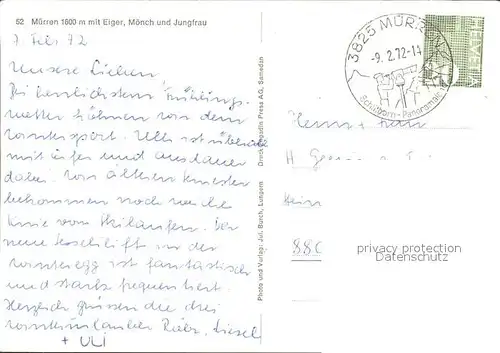 52 Mürren 1600 m mit Eiger, Mönch und Jungfrau
7 Feb 72
Unsere Lieben,
Bei herrlichstem Frühlings-
wetter frönen wir dem
Wintersport. Ulli ist überall
mit Eifer und Ausdauer
dabei. Wir älteren Knaster
bekommen noch weiche
Knie vom Skilaufen. Der
neue Sessellift in der
Winteregg ist fantastisch
und stark frequentiert.
Herzlich grüssen die drei
Winterurlauber Liesel
+ ULI
Photo und Verlag: Jul. Burch, Lungern Druck: Engadin Press AG, Samedan
3825 MÜRREN
-9.2.72-14
Schilthorn-Panorama
HELVETIA
Herrn + Frau
H
880
privacy protection
Datenschutz